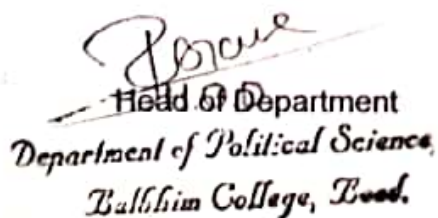 Head of Department
Department of Political Science,
Balbhim College, Beed.